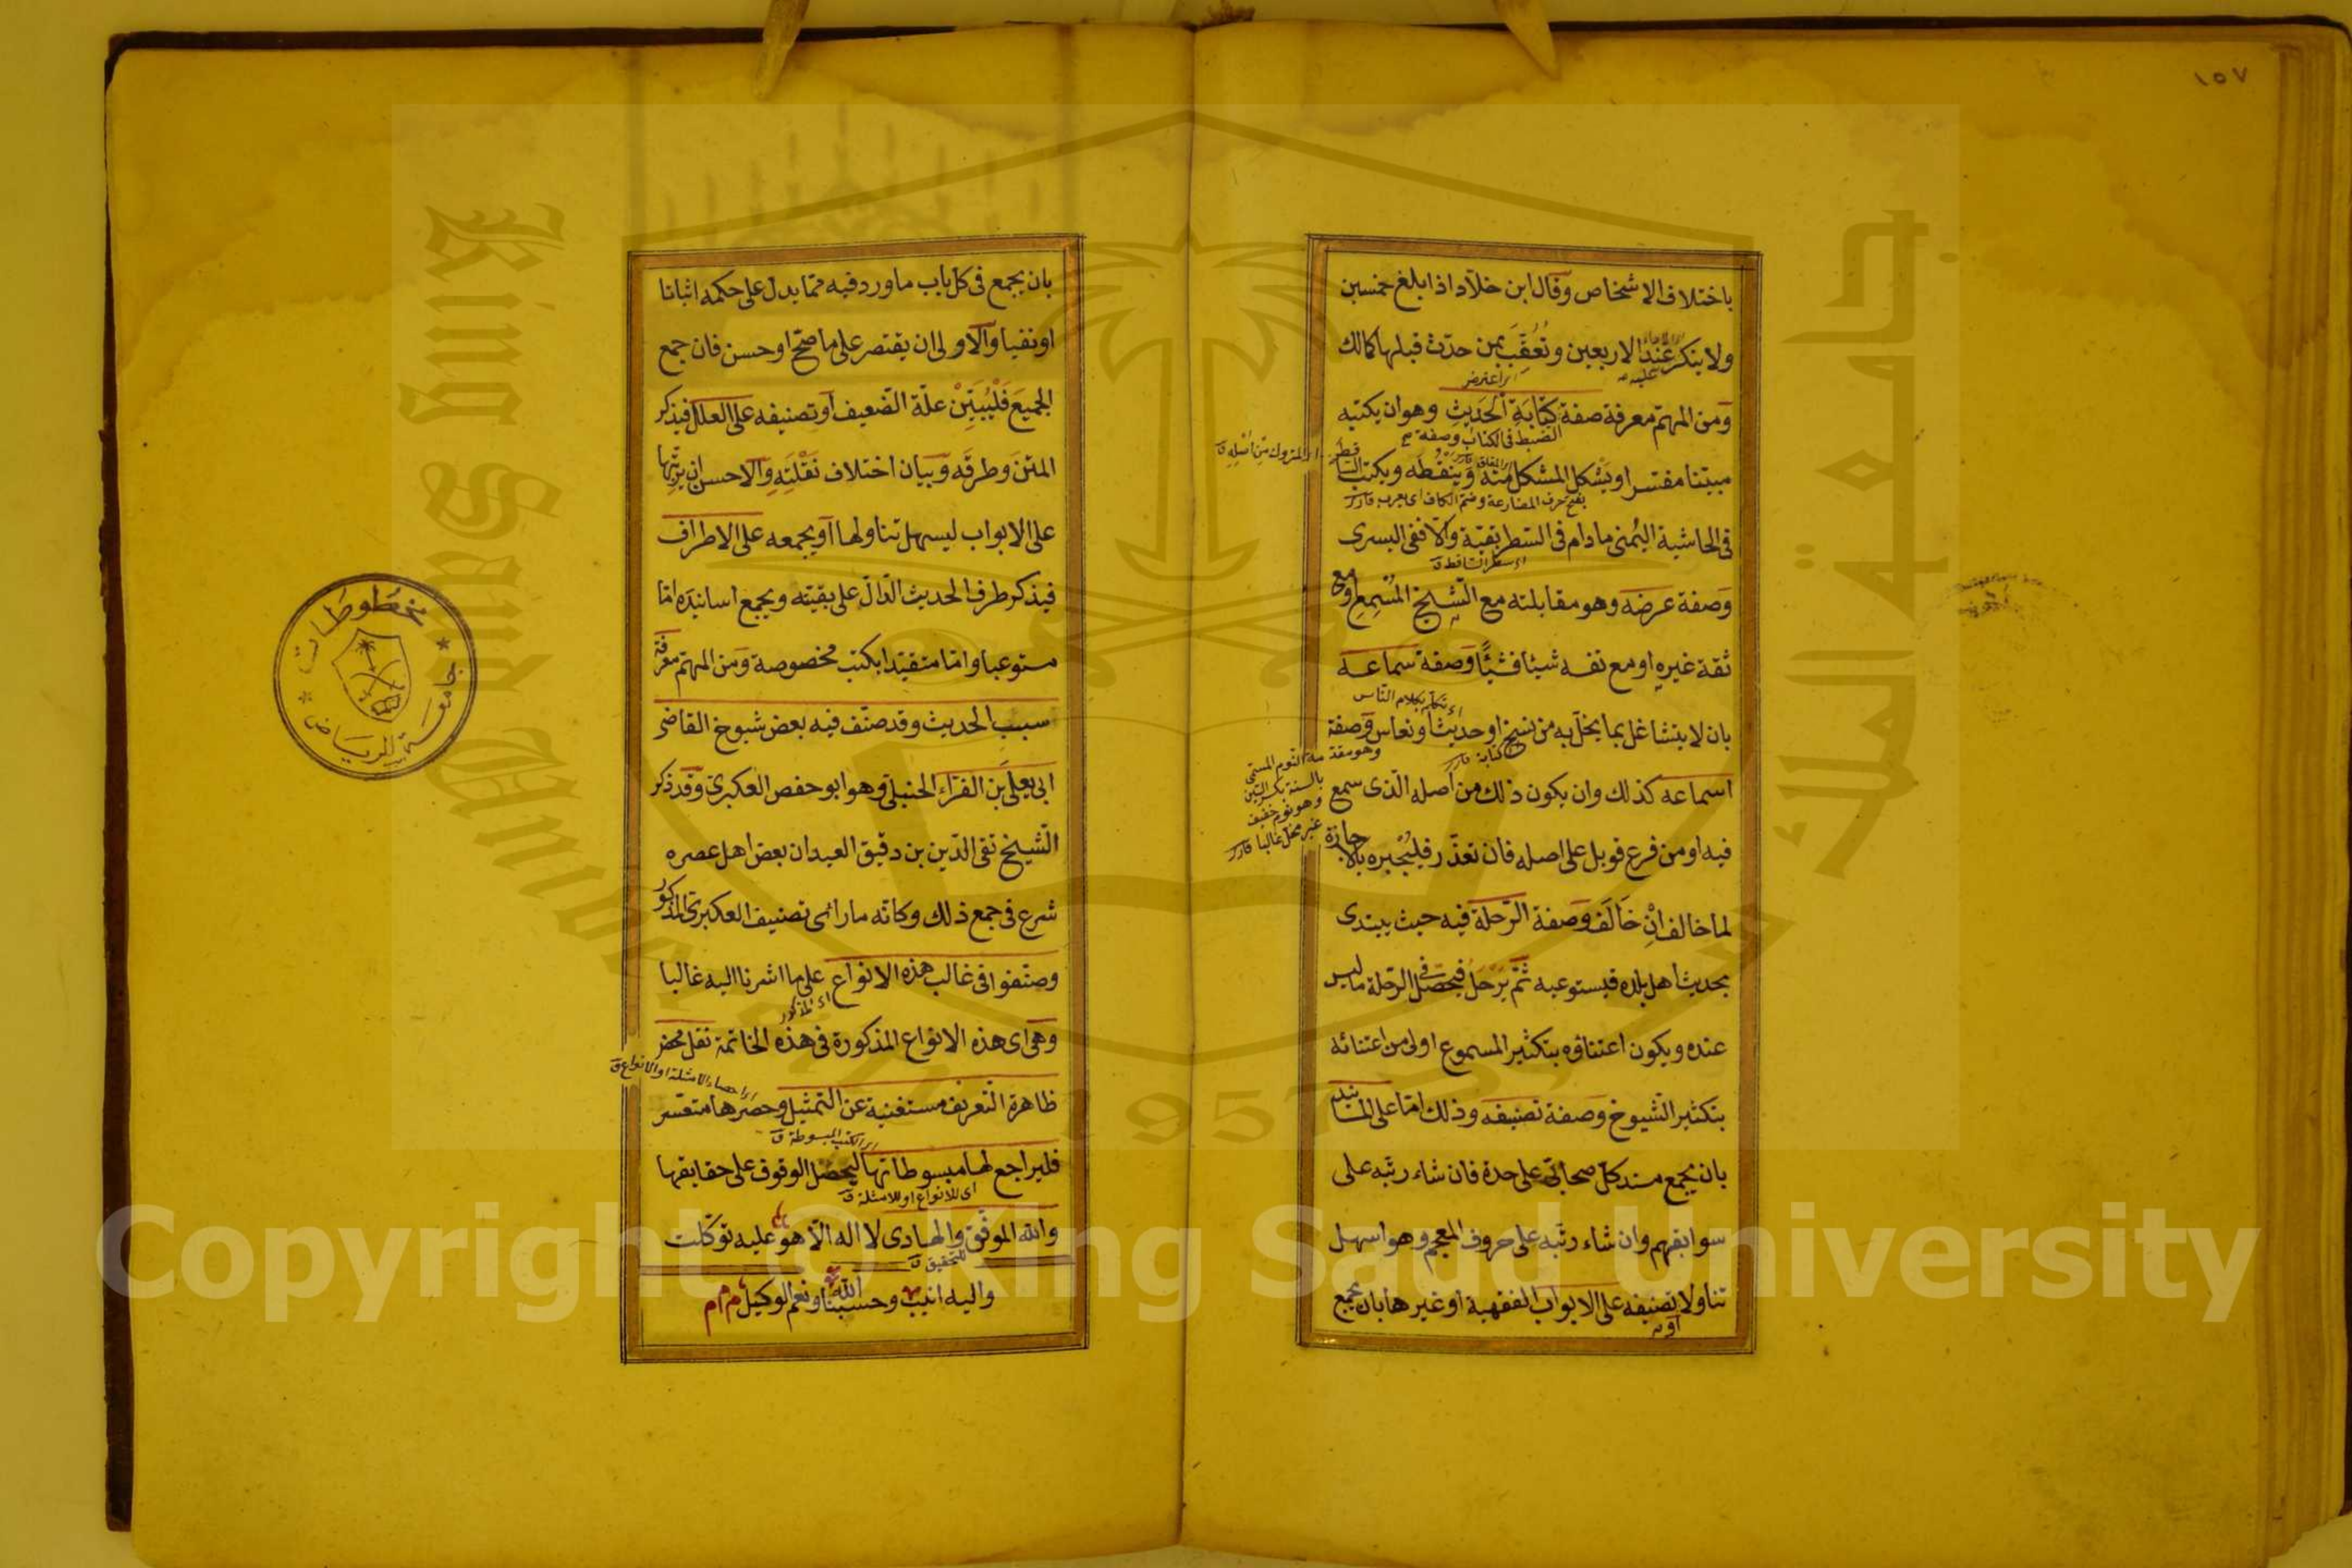 ١٥٧
باختلاف الاشخاص وقال ابن خلاد اذا بلغ خمسين
ولا ينكر عند الاربعين وتُعُقِّبَ بمن حدّث قبلها كمالك
ومن المهمّ معرفة صفة كتابة الحديث وهو ان يكتبه
مبيّنا مفسّرا ويشكل المشكل منه وينقطه ويكتب الساقط
فى الحاشية اليُمنى مادام فى السطر بقيّة والّا ففى اليسرى
وصفة عرضه وهو مقابلته مع الشيخ المُسْمِع او مع
ثقة غيره او مع نفسه شيئا فشيئًا وصفة سماعه
بان لا يتشاغل بما يخلّ به من نسخ او حديث او نعاس وصفة
اسماعه كذلك وان يكون ذلك من اصله الّذى سمع
فيه او من فرع قوبل على اصله فان تعذّر فليُجبره بالاجازة
لما خالف انْ خَالَفَ وصفة الرّحلة فيه حيث يبتدى
بحديث اهل بلده فيستوعبه ثمّ يَرْحَلُ فيحصّل فى الرّحلة ما ليس
عنده ويكون اعتناؤه بتكثير المسموع اولى من اعتنائه
بتكثير الشيوخ وصفة تصنيفه وذلك امّا على المسانيد
بان يجمع مسند كلّ صحابىّ على حدة فان شاء رتّبه على
سوابقهم وان شاء رتّبه على حروف المعجم وهو اسهل
تناولا تصنيفه على الابواب الفقهية او غيرها بان يجمع
او
عليه
اى اعترض
الضبط فى الكتاب وصفة
اى المتروك من اصله ق
بفتح حرف المضارعة وضم الكاف اى يعرب قارى
اى سطر الساقط ق
اى يتكلّم بكلام الناس
كتابة قارى
وهو مقدمة النوم المسمى
بالسنة بكسر السين
وهو نوم خفيف
غير مخل غالبا قارى
بان يجمع فى كل باب ما ورد فيه ممّا يدل على حكمه اثباتا
او نفيا والاولى ان يقتصر على ما صحّ او حسن فان جمع
الجميعَ فَلْيُبَيِّنْ علّة الضّعيف او تصنيفه على العلل فيذكر
المتنَ وطرقَه وبيان اختلاف نَقْلَتِهِ والاحسن ان يرتّبها
على الابواب ليسهل تناولها او يجمعه على الاطراف
فيذكر طرف الحديث الدّالّ على بقيّته ويجمع اسانيده امّا
مستوعبا وامّا متقيّدا بكتب مخصوصة ومن المهمّ معرفة
سبب الحديث وقد صنّف فيه بعض شيوخ القاضى
ابى يعلى بن الفرّاء الحنبلى وهو ابو حفص العكبرى وقد ذكر
الشيخ تقى الدّين بن دقيق العيد ان بعض اهل عصره
شرع فى جمع ذلك وكانّه ما رأى تصنيف العكبرى المذكور
وصنّفوا فى غالب هذه الانواع على ما اشرنا اليه غالبا
اى المذكور
وهى اى هذه الانواع المذكورة فى هذه الخاتمة نقل محض
اى احصاء الامثلة او الانواع ق
ظاهرة التّعريف مستغنية عن التمثيل وحصرها متعسّر
اى الكتب المبسوطة ق
فليراجع لها مبسوطاتها ليحصل الوقوف على حقايقها
اى للانواع او للامثلة ق
والله الموفّق والهادى لا اله الّا هو عليه توكّلت
للتحقيق ق
واليه انيب وحسبنا الله ونعم الوكيل م م م
مخطوطات
جامعة الرياض
جامعة الملك سعود
King Saud University
1957
Copyright © King Saud University